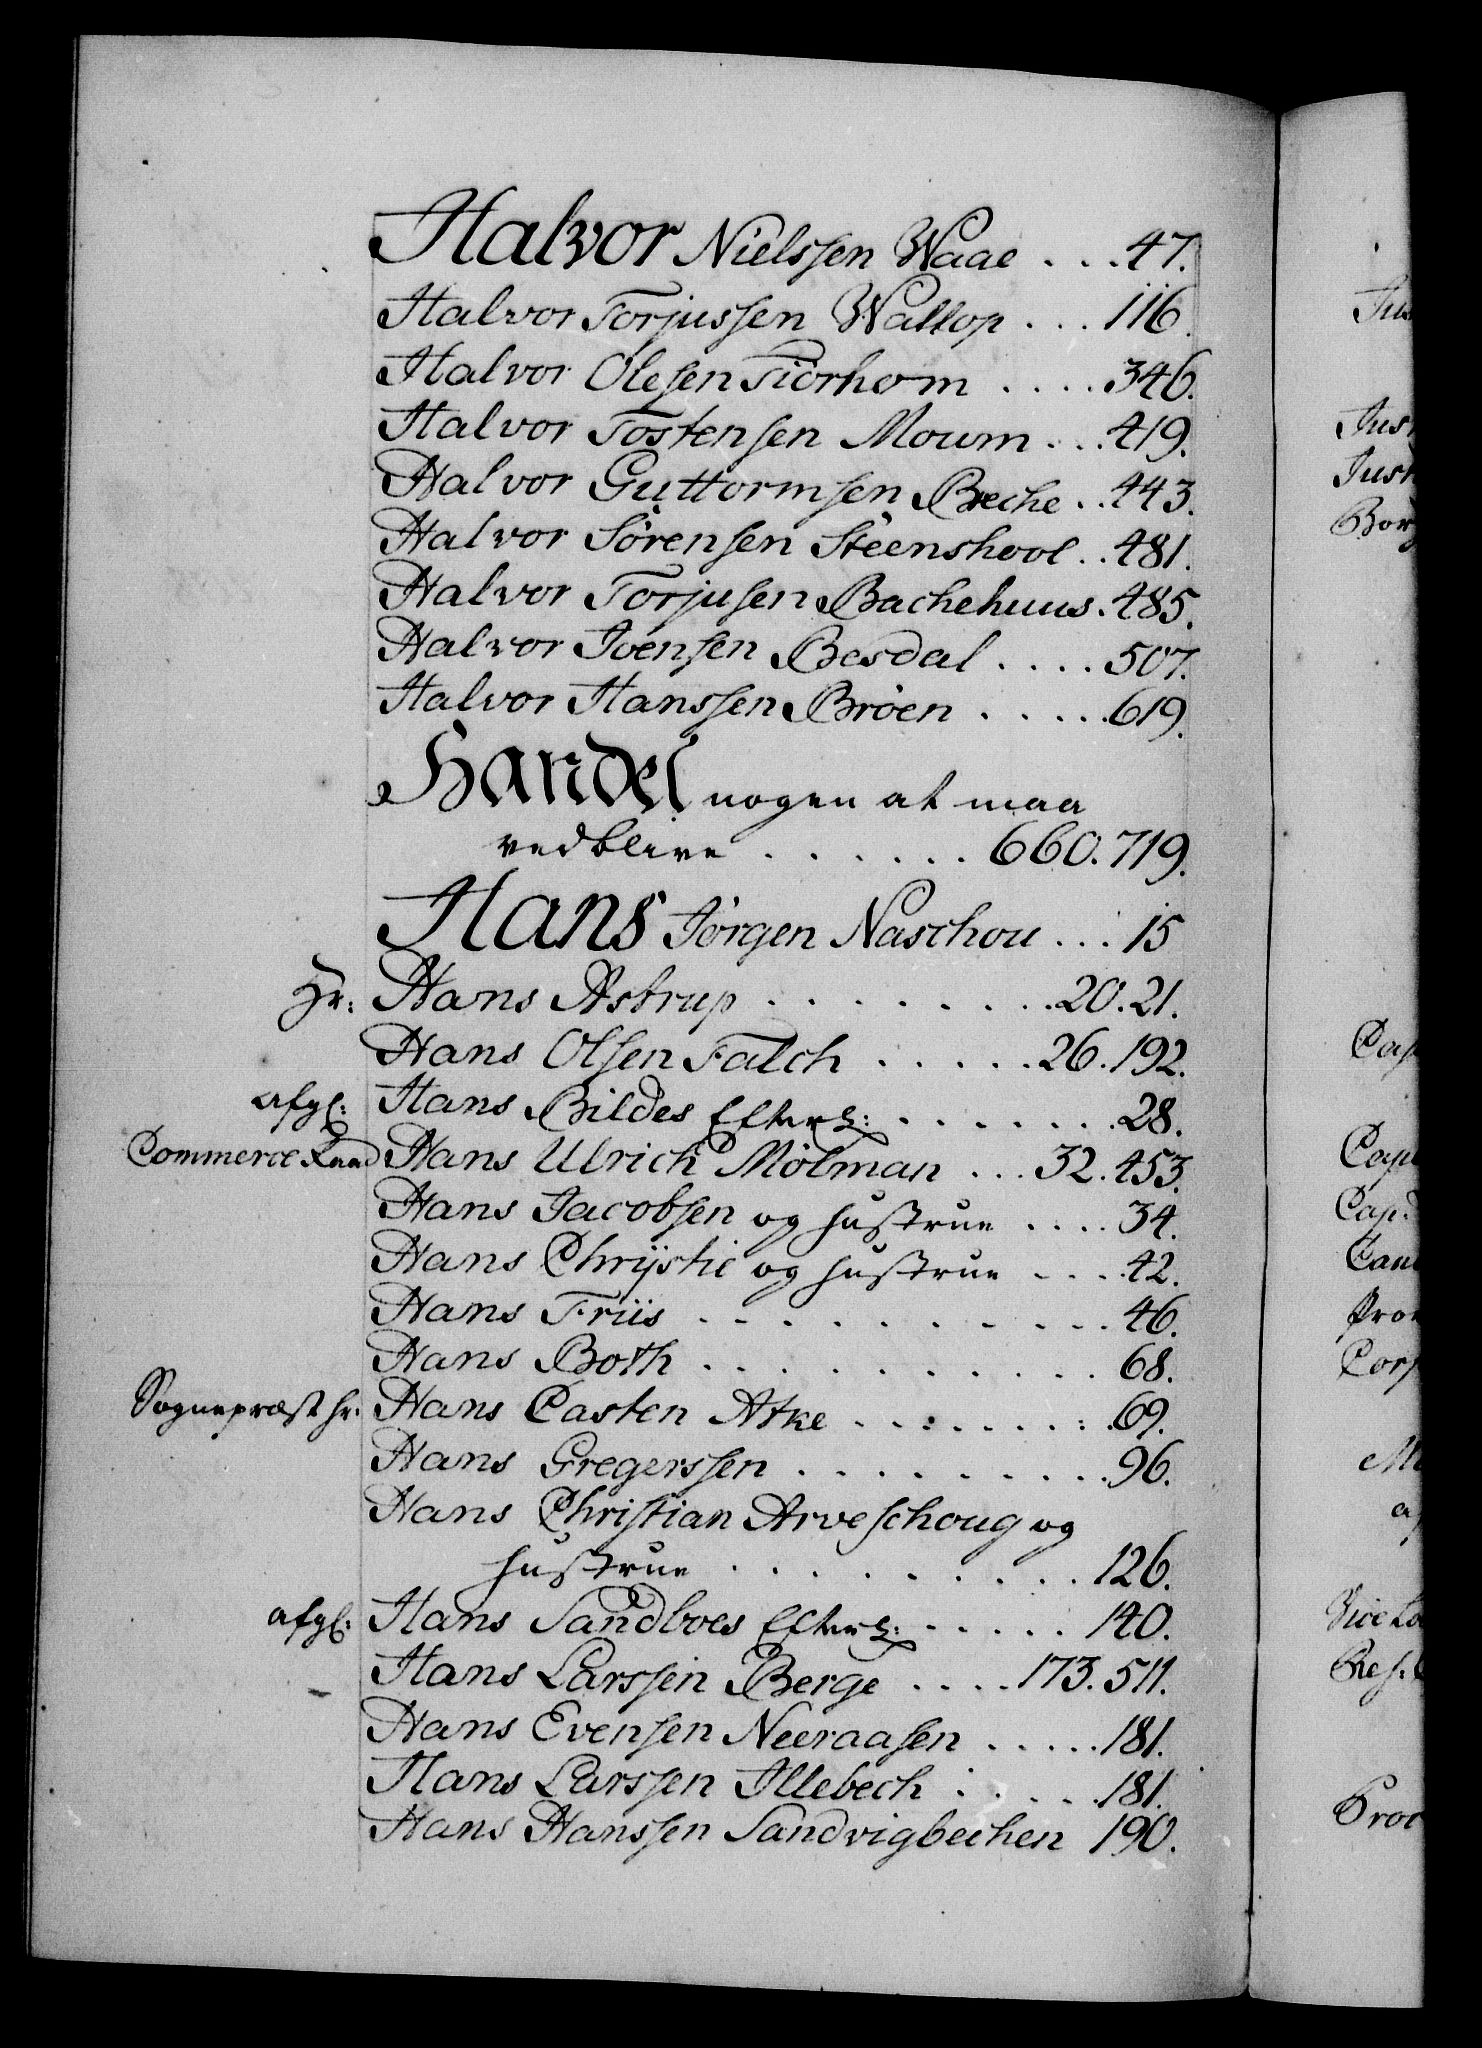 Halvor Nielssen Waae . . . 47.
Halvor Torjussen Wallop . . . 116.
Halvor Olesen Tiørhom . . . . 346.
Halvor Tostensen Moum . . . 419.
Halvor Guttormsen Breche . . 443.
Halvor Sørensen Steenshool . . 481.
Halvor Torjusen Bachehuus . 485.
Halvor Joensen Besdal . . . . 507.
Halvor Hanssen Brøen . . . . . 619.
Handel nogen at maa
vedblive . . . . . . 660. 719.
Hans Jørgen Naschou . . . 15
Hr: Hans Astrup . . . . . . . . . 20. 21.
Hans Olsen Falch . . . . . 26. 192.
afgl: Hans Bildes Efterl: . . . . . . . 28.
Commerce Raad Hans Ulrich Mølman . . . 32. 453.
Hans Jacobsen og hustrue . . . . 34.
Hans Chrÿstie og hustrue . . . . 42.
Hans Friis . . . . . . . . . . . 46.
Hans Both . . . . . . . . . . 68.
Sognepræst hr. Hans Casten Atke . . . . . . . . 69.
Hans Gregerssen . . . . . . . . . 96.
Hans Christian Arveschoug og
hustrue . . . . . . . . . 126.
afgl: Hans Sandboes Efterl: . . . . . 140.
Hans Larssen Berge . . . . 173. 511.
Hans Evensen Neeraasen . . . . . 181.
Hans Larssen Illebech . . . . . 181.
Hans Hanssen Sandvigbechen 190.